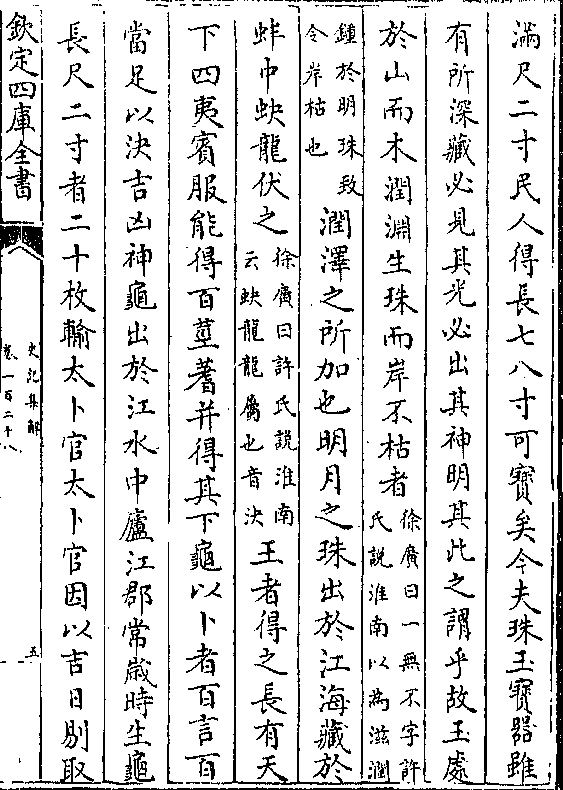 滿尺二寸民人得長七八寸可寶矣今夫珠玉寶器雖
有所深藏必見其光必出其神明其此之謂乎故玉處
於山而木潤淵生珠而岸不枯者徐廣曰一無不字許
氏說淮南以為滋潤
鍾於明珠致
令岸枯也
潤澤之所加也明月之珠出於江海藏於
蚌中蚗龍伏之徐廣曰許氏說淮南
云蚗龍龍屬也音決
王者得之長有天
下四夷賓服能得百莖蓍并得其下龜以卜者百言百
當足以決吉凶神龜出於江水中廬江郡常歲時生龜
長尺二寸者二十枚輸太卜官太卜官因以吉日剔取
欽定四庫全書
史記集解
卷一百二十八
五